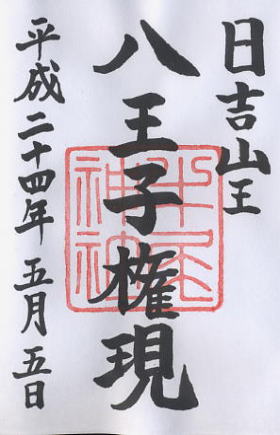 日吉山王
八王子権現
平成二十四年 五月五日